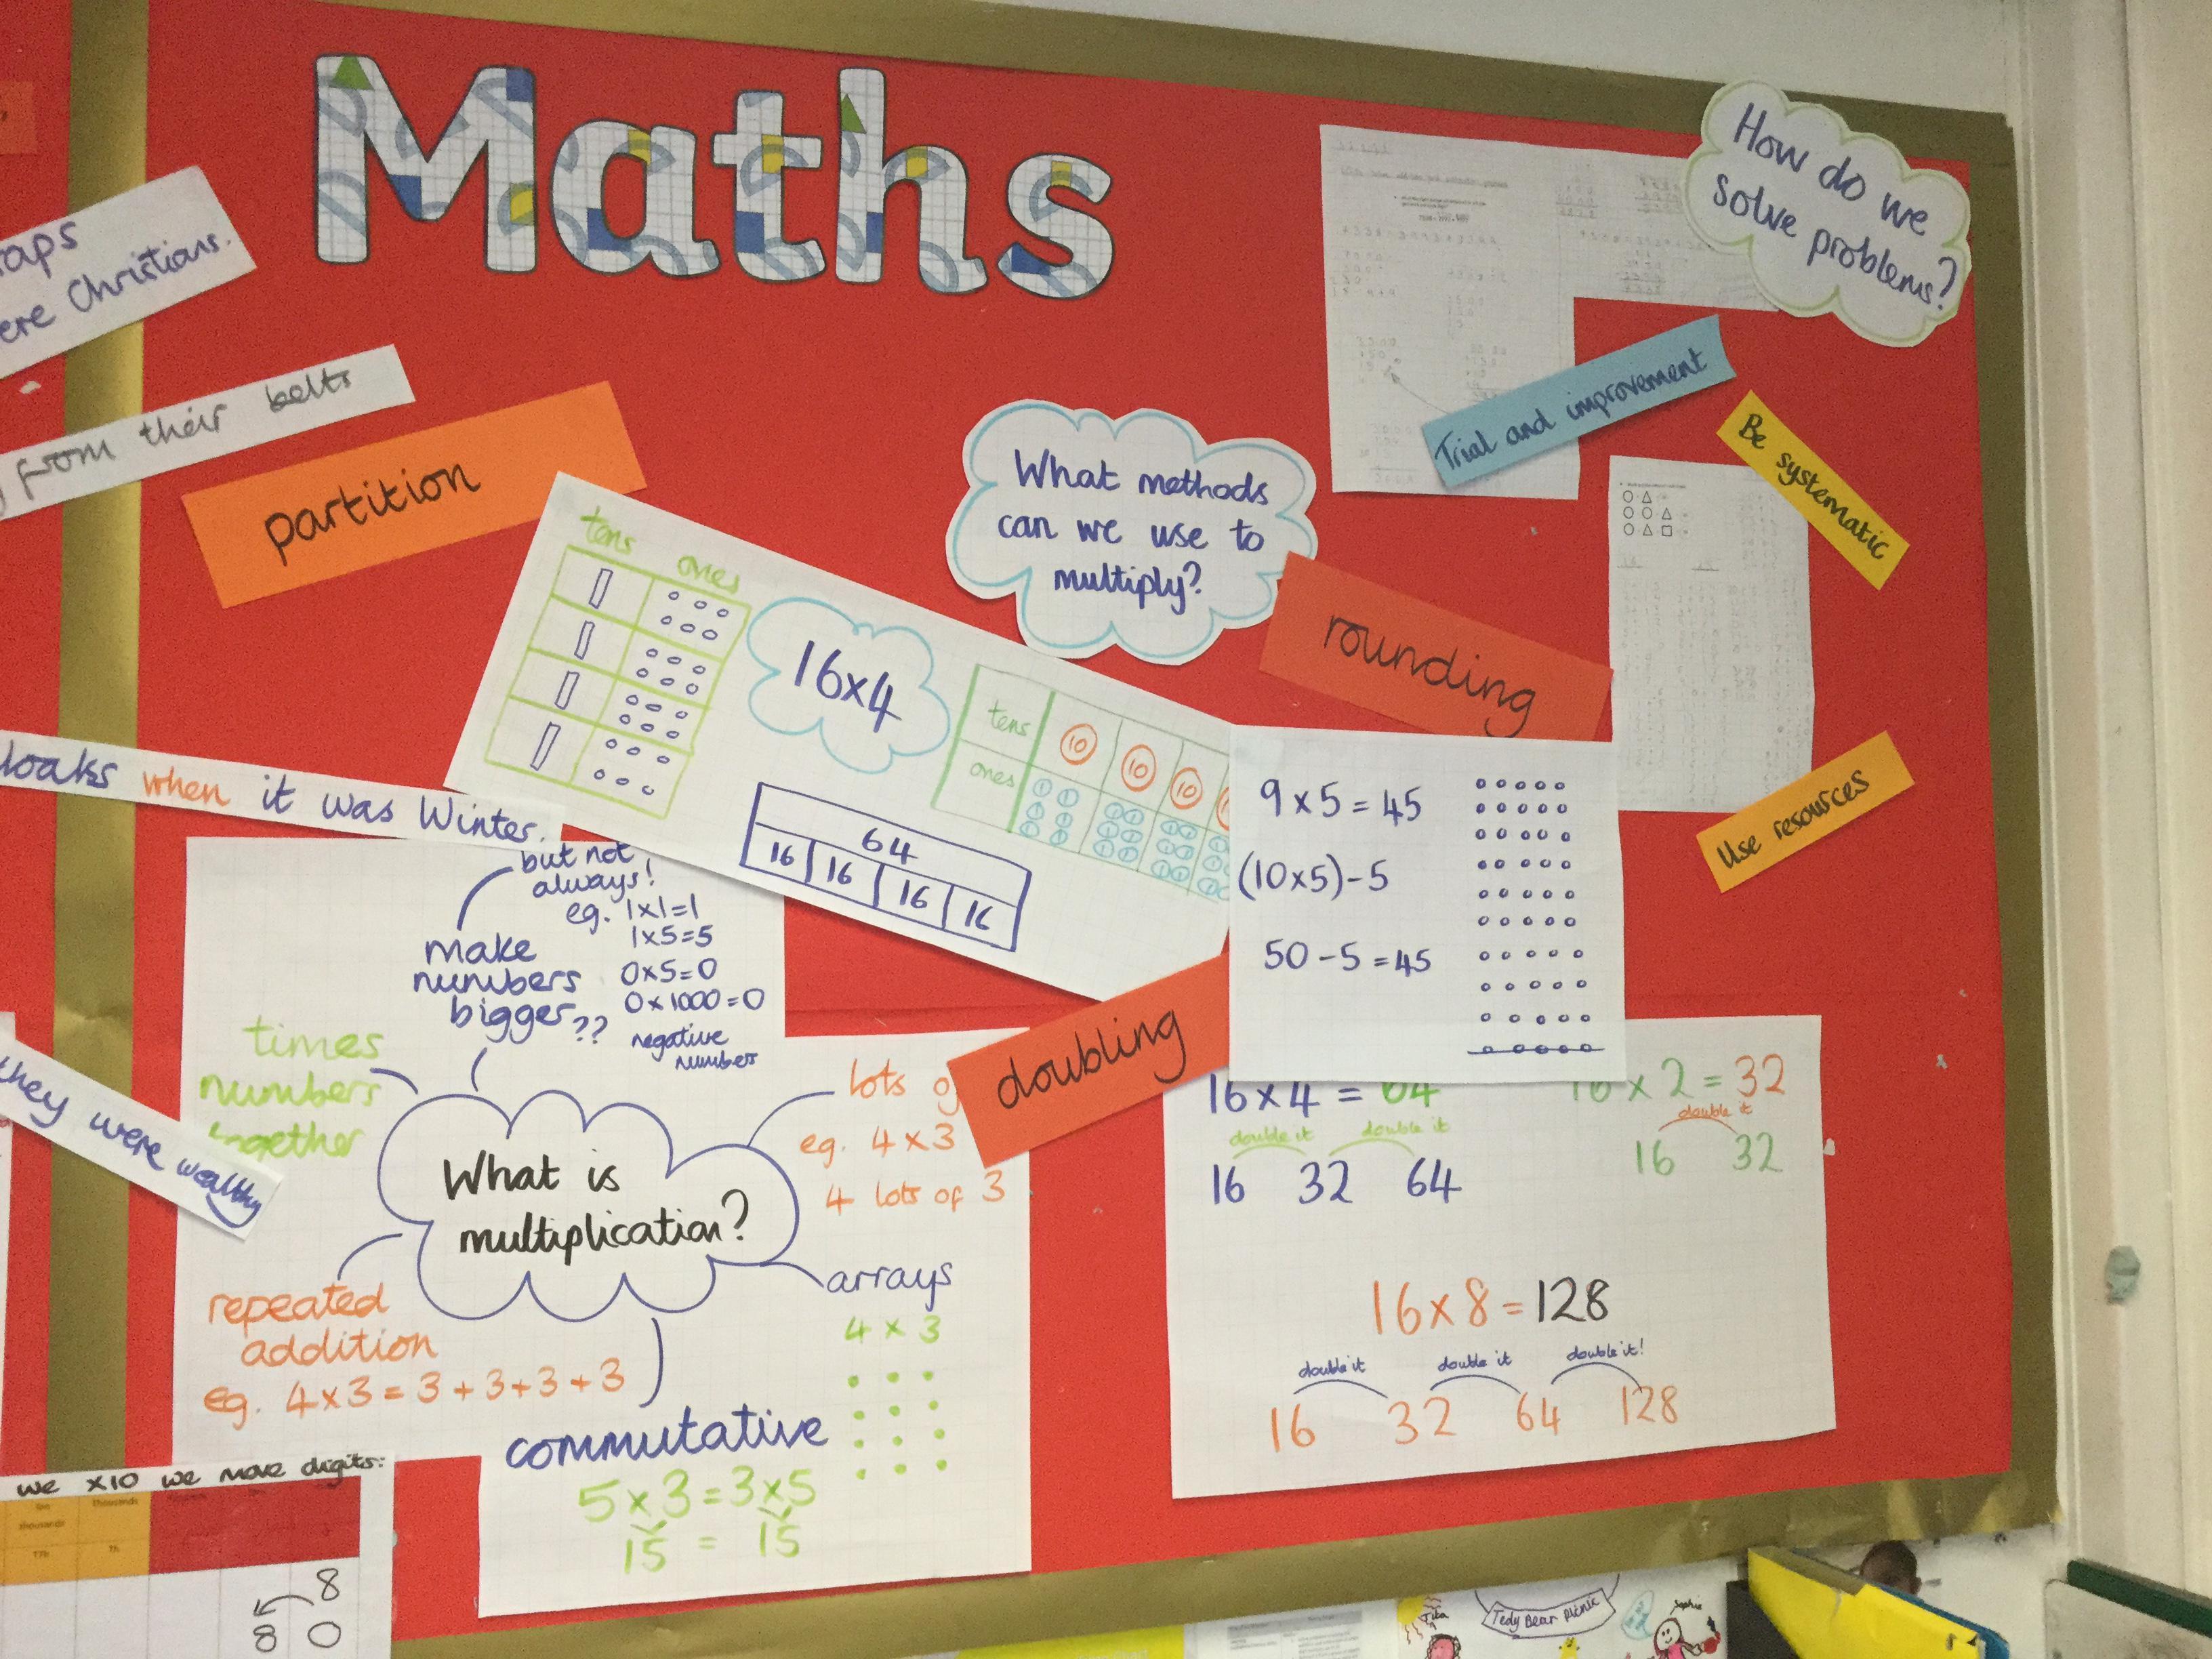 Maths
How do we
solve problems?
Trial and improvement
Be systematic
Use resources
ere Christians.
from their belts
partition
What methods
can we use to
multiply?
rounding
tens ones
16x4
tens 10 10 10
ones
64
16 16 16 16
9 x 5 = 45
(10x5)-5
50 - 5 = 45
when it was Winter.
but not
always!
eg. 1x1=1
1x5=5
0x5=0
0x1000=0
negative
numbers
make
numbers
bigger??
times
numbers
together
they were wealthy
What is
multiplication?
lots
eg. 4 x 3
4 lots of 3
doubling
arrays
4 x 3
repeated
addition
eg. 4x3 = 3+3+3+3
commutative
5 x 3 = 3 x 5
15 = 15
16 x 4 = 64
double it double it
16 32 64
16 x 2 = 32
double it
16 32
16 x 8 = 128
double it double it double it!
16 32 64 128
we x10 we move digits:
thousands
thousands
TTh Th
8
8 0
Tedy Bear Picnic
Sophie